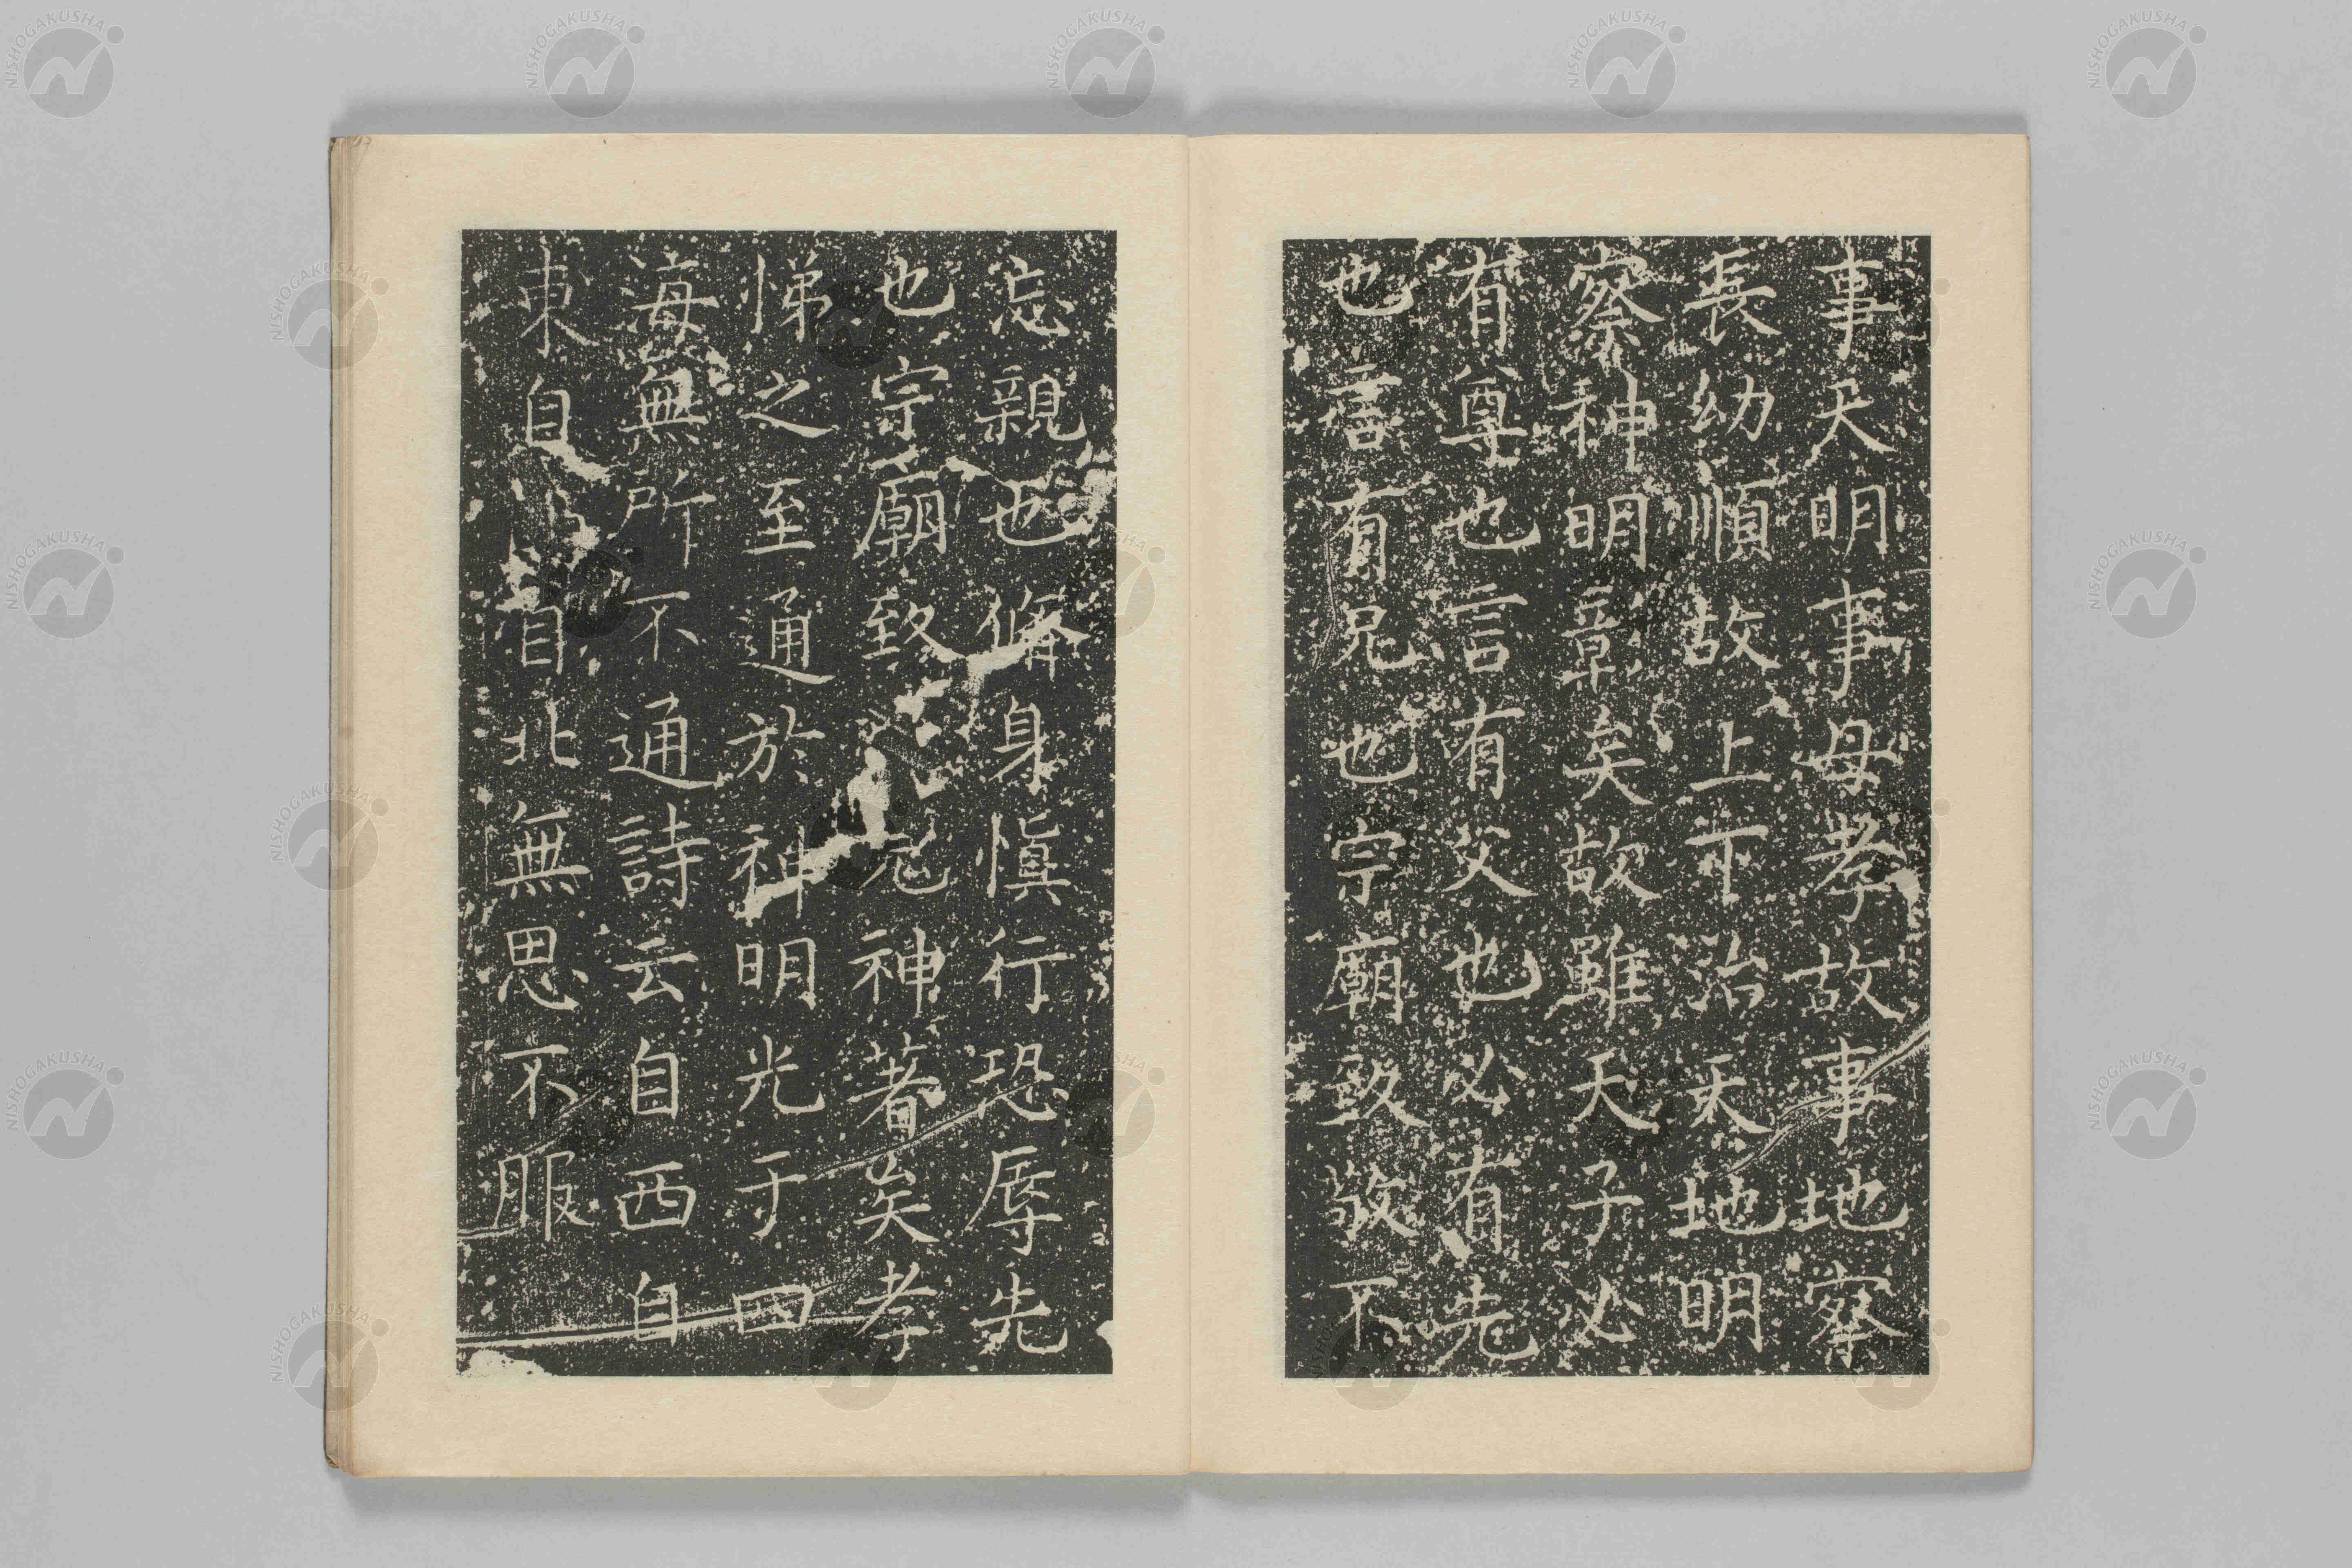 事天明事母孝故事地察
長幼順故上下治天地明
察神明彰矣故雖天子必
有尊也言有父也必有先
也言有兄也宗廟致敬不
忘親也脩身慎行恐辱先
也宗廟致鬼神著矣孝
悌之至通於神明光于四
海無所不通詩云自西自
東自自北無思不服
NISHOGAKUSHA